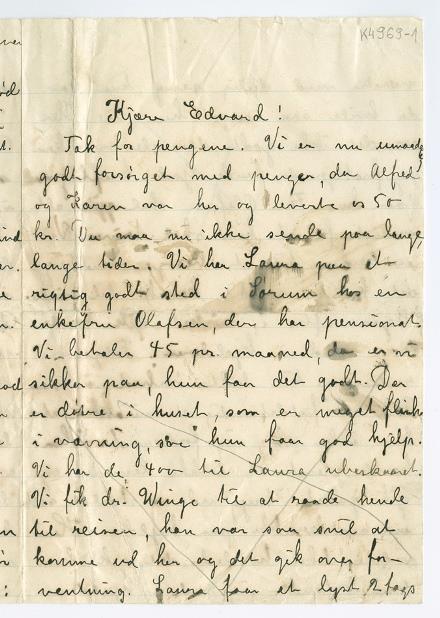 K4969-1
Kjære Edvard!
Tak for pengene. Vi er nu umaade
godt forsørget med penger, da Alfred
og Karen var her og leverte os 50
kr. Du maa nu ikke sende paa lange,
lange tider. Vi har Laura paa et
rigtig godt sted i Sørum hos en
enkefru Olafsen, der har pensionat.
Vi betaler 45 pr. maaned, da er vi
sikker paa, hun faar det godt. Der
er døtre i huset, som er meget flinke
i vævning, saa hun faar god hjælp.
Vi har de 400 til Laura uberskaaret.
Vi fik dr. Winge til at raade hende
til reisen, han var saa snil at
komme ud her og det gik over for-
ventning. Laura faar et lyst 2 fags